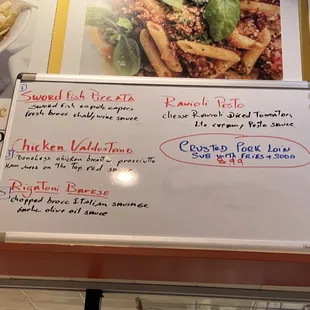 Sword Fish Piccata
Sword fish capote capers
fresh brocc chably wine sauce
Chicken Valdostano
Boneless chicken breast prosciutto
Ham mozz on the Top red sauce
Rigatoni Barese
chopped brocc Italian sausage
garlic olive oil sauce
Ravioli Pesto
cheese Ravioli Dried Tomatoes
Lite creamy Pesto sauce
Crusted Pork Loin
Sub with Fries + Soda